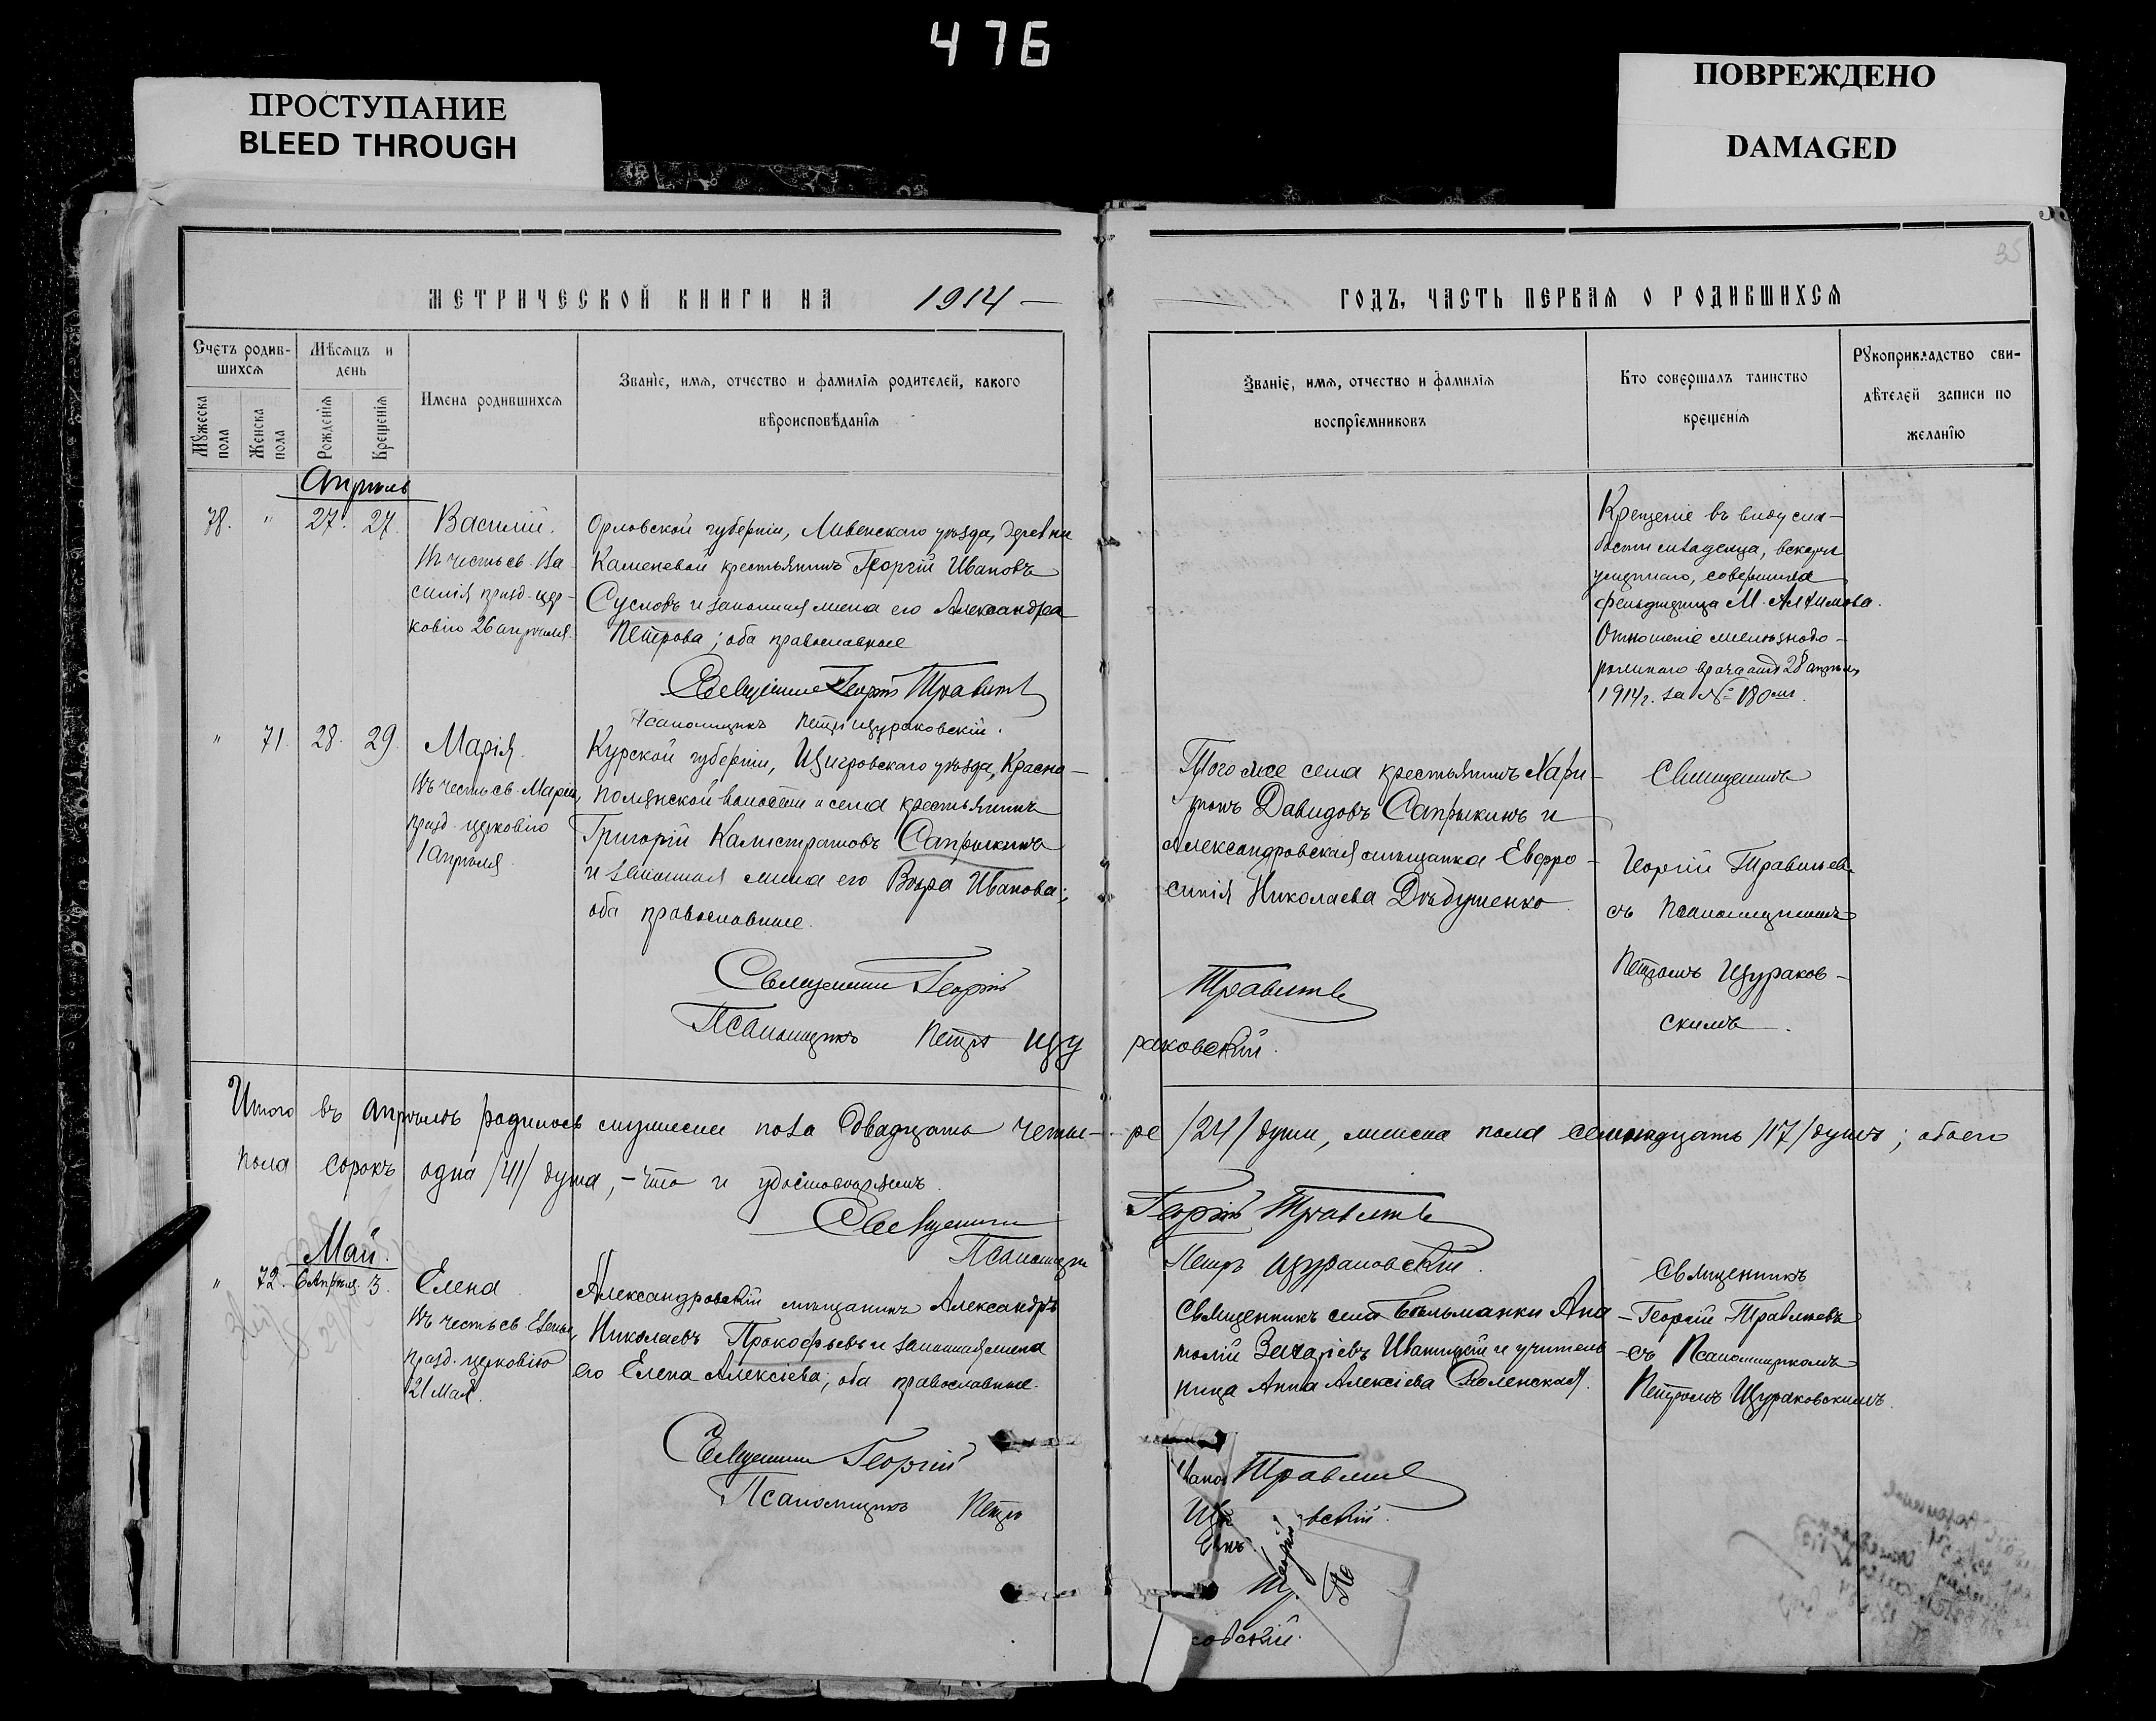 476
ПРОСТУПАНИЕ
BLEED THROUGH
ПОВРЕЖДЕНО
DAMAGED
35
МЕТРИЧЕСКОЙ КНИГИ НА 1914
ГОДЪ, ЧАСТЬ ПЕРВАЯ О РОДИВШИХСЯ
Счетъ родив-
шихся
Мѣсяцъ и
день
Мужеска
пола
Женска
пола
Рожденія
Крещенія
Имена родившихся
Званіе, имя, отчество и фамилія родителей, какого
вѣроисповѣданія
Званіе, имя, отчество и фамилія
воспріемниковъ
Кто совершалъ таинство
крещенія
Рукоприкладство сви-
дѣтелей записи по
желанію
Апрѣль
78. " 27. 27.
Василій.
Въ честь св. Ва-
силія празд. цер-
ковію 26 апрѣля.
Орловской губерніи, Ливенскаго уѣзда, деревни
Каменевой крестьянинъ Георгій Ивановъ
Сусловъ и законная жена его Александра
Петрова; оба православные
Священникъ Георгій Травлѣевъ
Псаломщикъ Петръ Щураковскій.
Крещеніе въ виду сла-
бости младенца, вскорѣ
умершаго, совершила
фельдшерица М. Алфимова.
Отношеніе желѣзнодо-
рожнаго врача отъ 28 апрѣля
1914 г. за № 180
" 71. 28. 29.
Марія.
Въ честь св. Маріи,
празд. церковію
1 Апрѣля.
Курской губерніи, Щигровскаго уѣзда, Красно-
полянской волости и села крестьянинъ
Григорій Калистратовъ Сапрыкинъ
и законная жена его Вѣра Иванова;
оба православные.
Священникъ Георгій Травлѣевъ
Псаломщикъ Петръ Щураковскій.
Того же села крестьянинъ Хари-
тонъ Давидовъ Сапрыкинъ и
Александровская мѣщанка Евфро-
синія Николаева Дѣдушенко.
Священникъ
Георгій Травлѣевъ
съ Псаломщикомъ
Петромъ Щураков-
скимъ.
Итого въ апрѣлѣ родилось мужеска пола двадцать четы-ре /24/ души, женска пола семнадцать /17/ душъ; обоего
пола сорокъ одна /41/ душа, - что и удостовѣряемъ.
Священникъ Георгій Травлѣевъ
Псаломщикъ Петръ Щураковскій.
Май.
" 72. 6 Апрѣля. 3.
Елена.
Въ честь св. Елены,
празд. церковію
21 Мая.
Александровскій мѣщанинъ Александръ
Николаевъ Прокофьевъ и законная жена
его Елена Алексіева; оба православные.
Священникъ Георгій Травлѣевъ
Псаломщикъ Петръ
Священникъ села Бѣльманки Ана-
толій Захаріевъ Иваницкій и учитель-
ница Анна Алексіева Смоленская.
Священникъ
Георгій Травлѣевъ
съ Псаломщикомъ
Петромъ Щураковскимъ.
вскій.
ковскій.